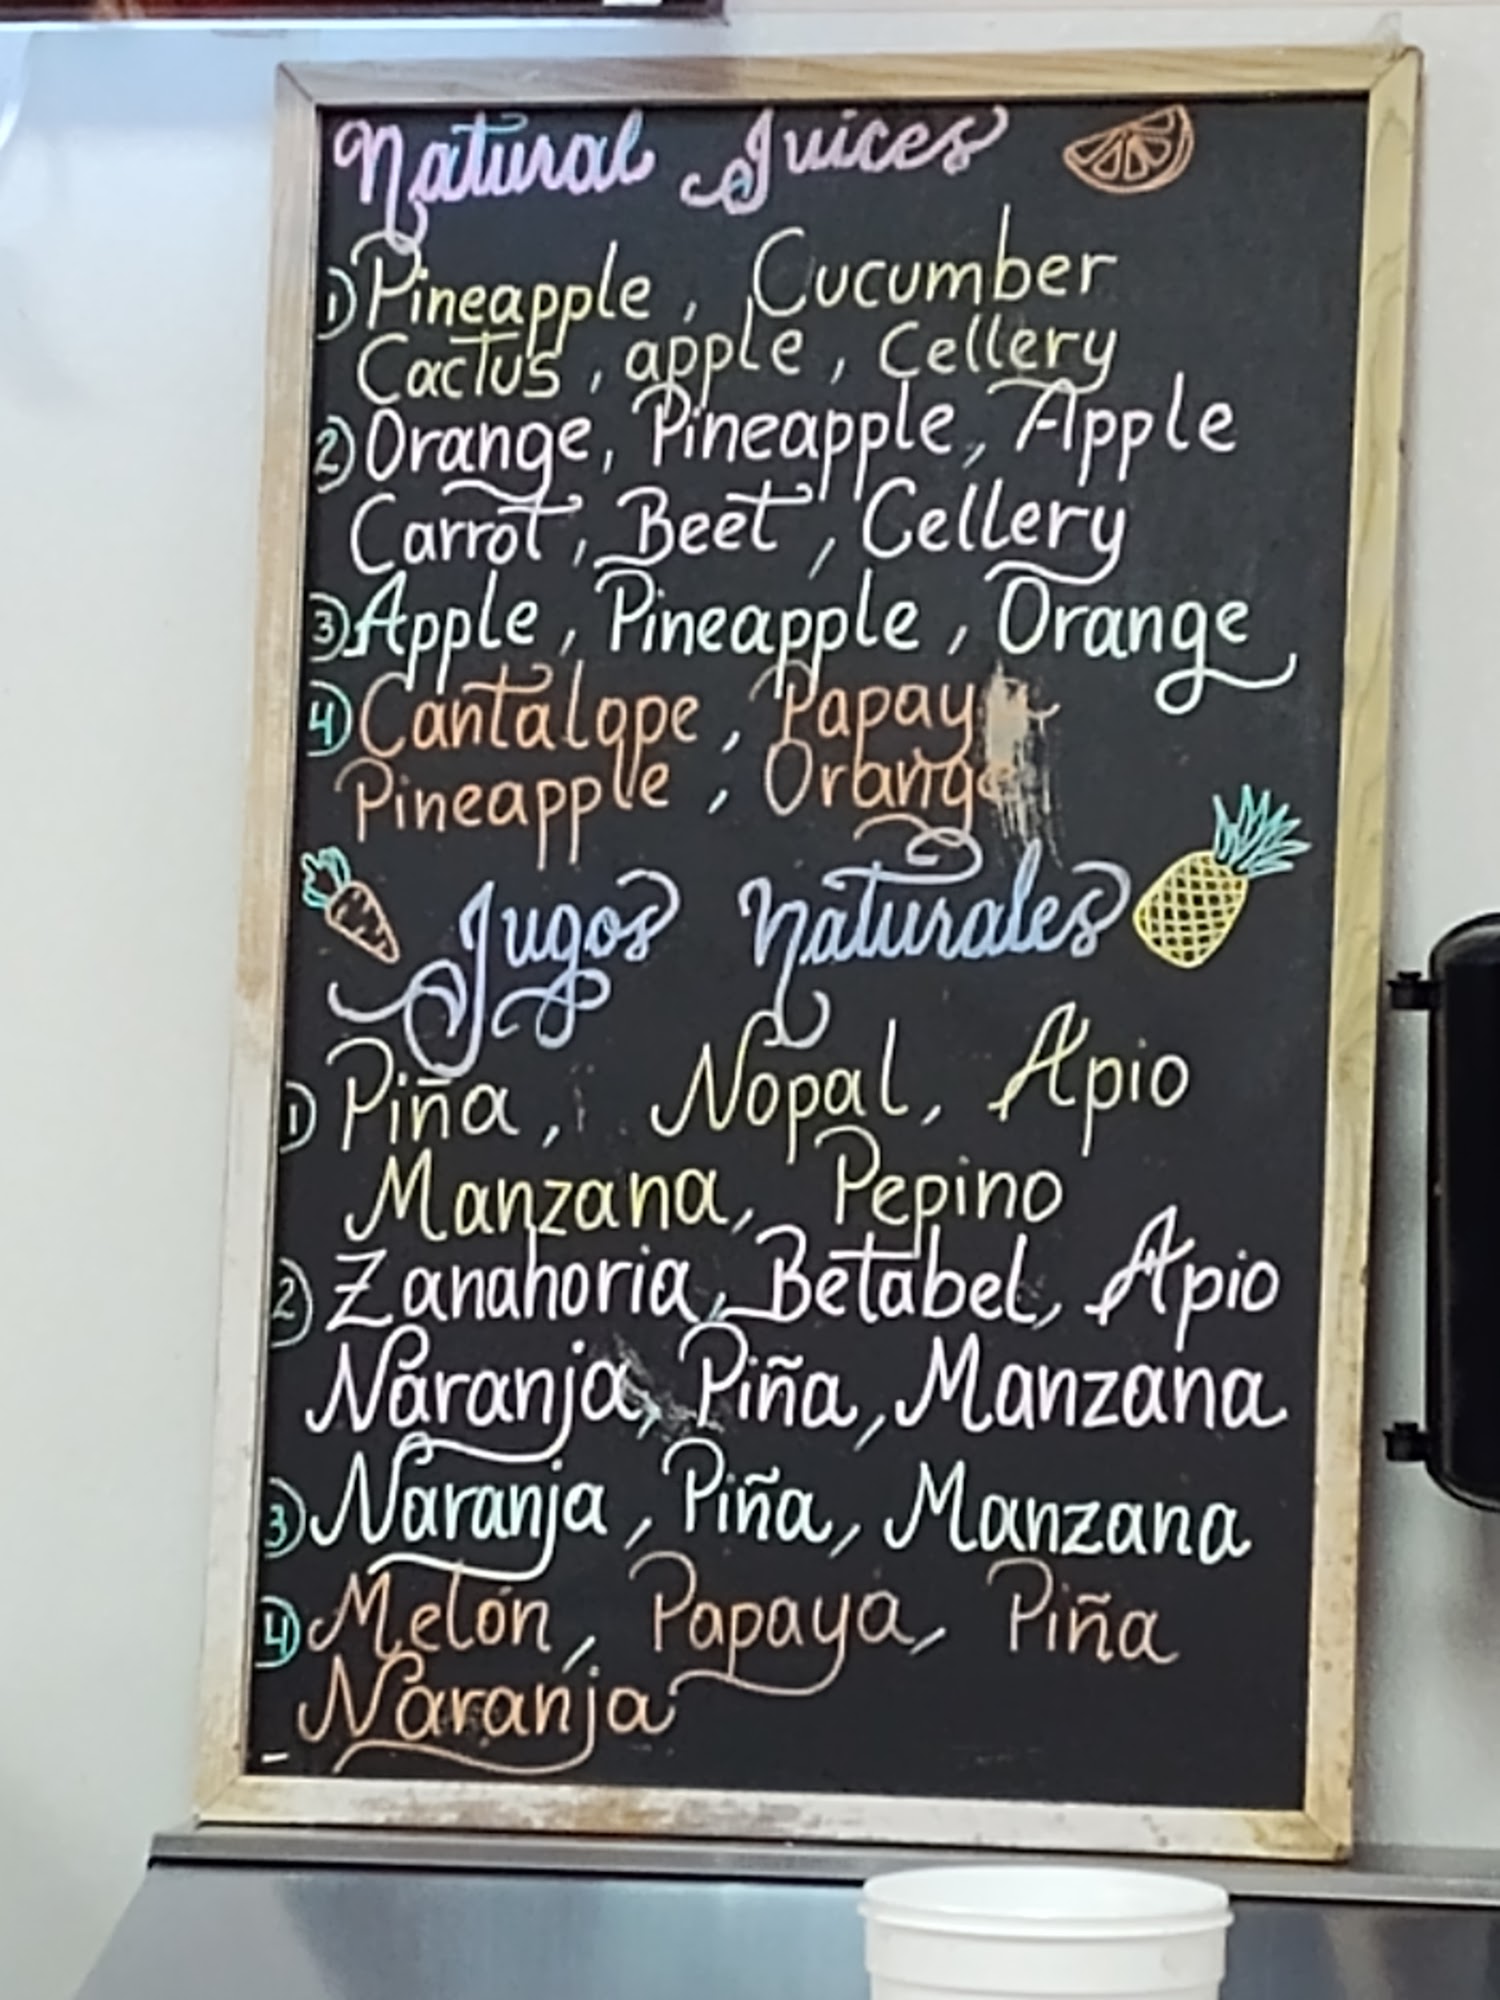 Natural Juices
1) Pineapple, Cucumber
Cactus, apple, Cellery
2) Orange, Pineapple, Apple
Carrot, Beet, Cellery
3) Apple, Pineapple, Orange
4) Cantalope, Papay
Pineapple, Orange
Jugos Naturales
1) Piña, Nopal, Apio
Manzana, Pepino
2) Zanahoria, Betabel, Apio
Naranja, Piña, Manzana
3) Naranja, Piña, Manzana
4) Melón, Papaya, Piña
Naranja